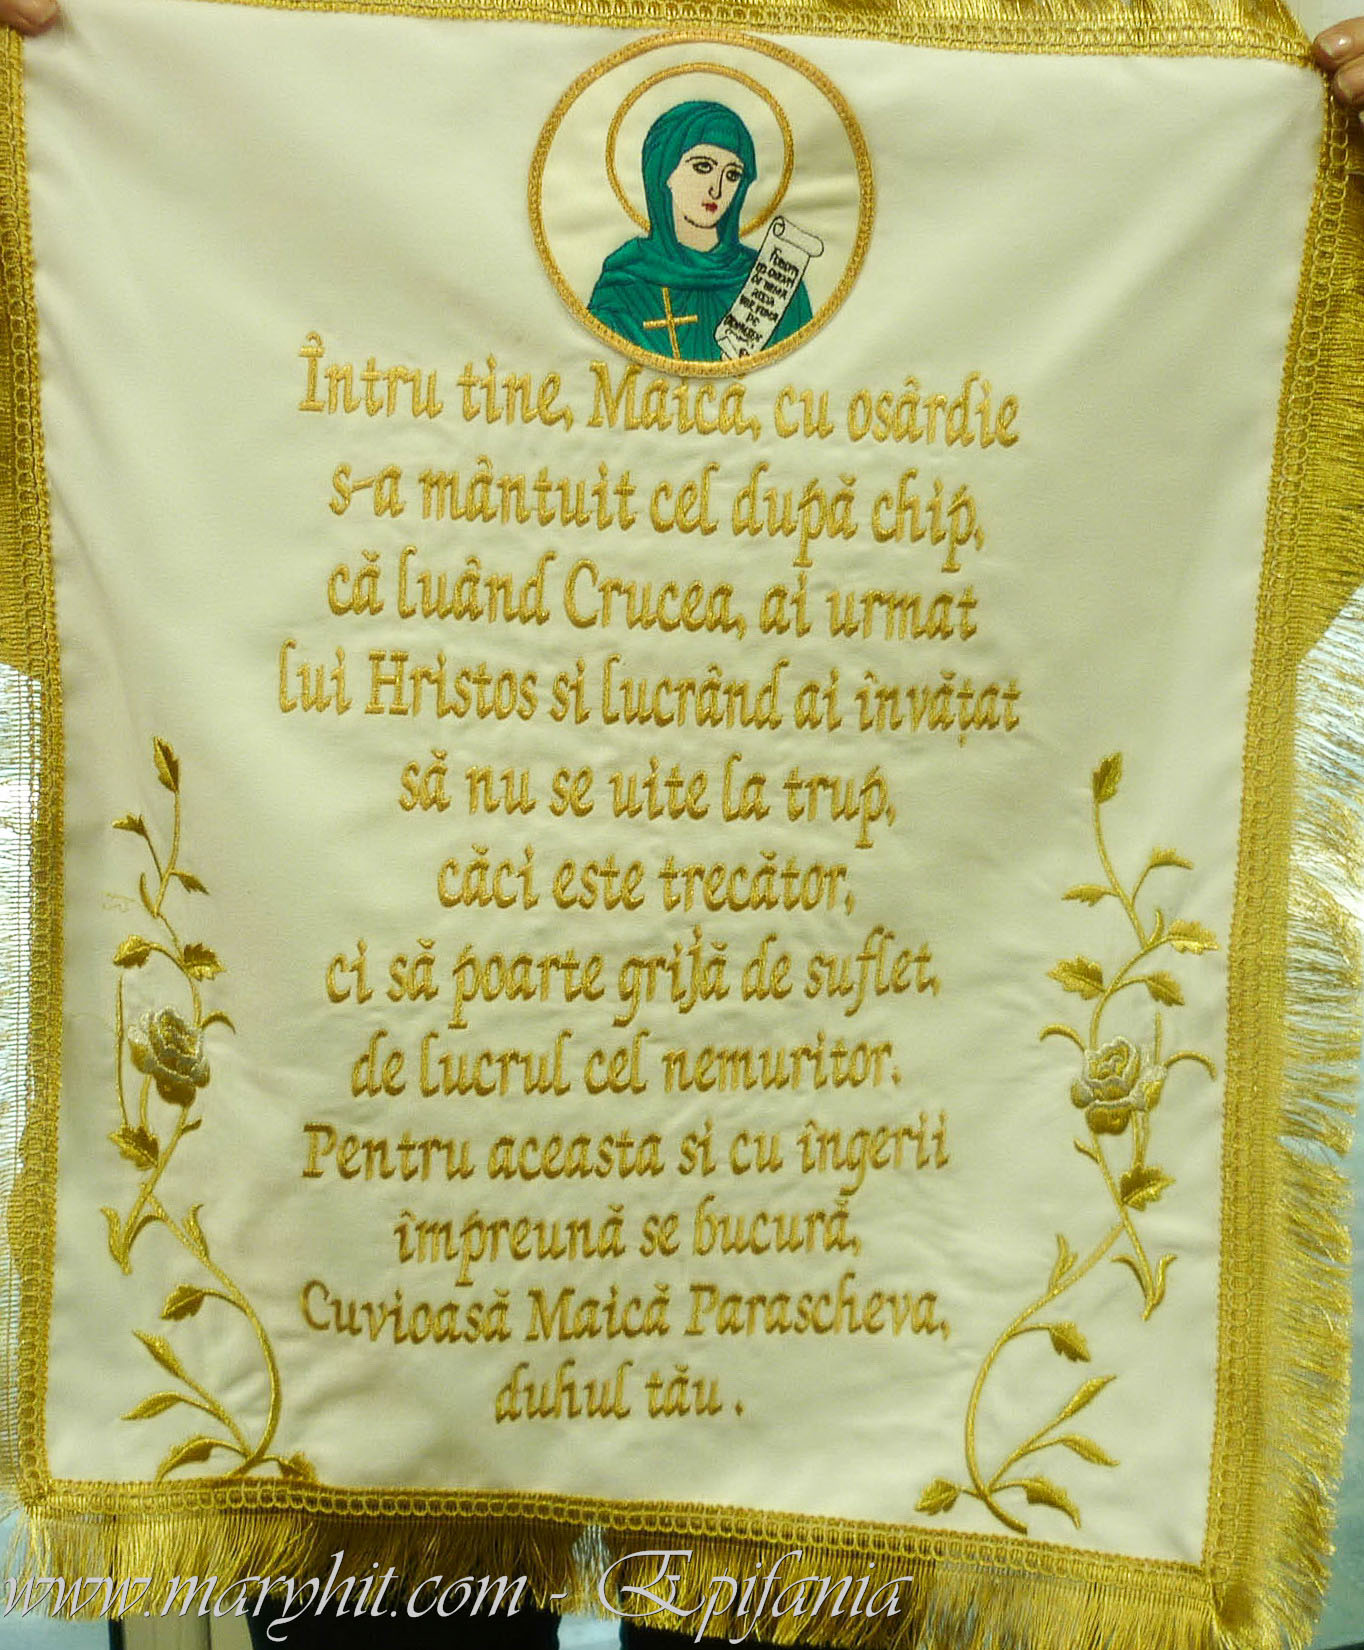 Întru tine, Maică, cu osârdie
s-a mântuit cel după chip,
că luând Crucea, ai urmat
lui Hristos si lucrând ai învățat
să nu se uite la trup,
căci este trecător,
ci să poarte grijă de suflet,
de lucrul cel nemuritor.
Pentru aceasta si cu îngerii
împreună se bucură,
Cuvioasă Maică Parascheva,
duhul tău .
www.maryhit.com - Epifania